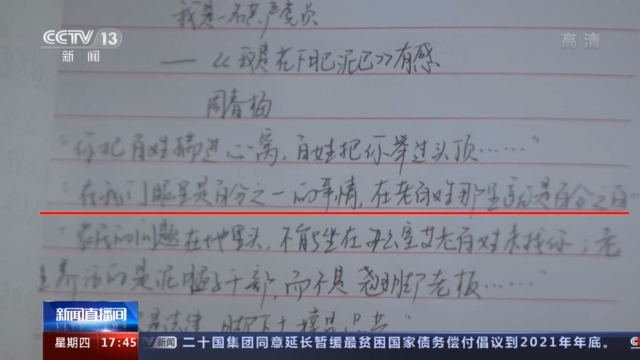 CCTV 13
新闻
高清
我是一名共产党员
——《我是花下肥泥巴》有感
周春梅
“你把百姓揣进心窝,百姓把你举过头顶……”
“在我们眼里是百分之一的事情,在老百姓那里就是百分之百
“农民的问题在地里头,不能坐在办公室女老百姓来找你;老
养活的是泥腿子干部,而不是翘脚老板……
新闻直播间
星期四 17:45
二十国集团同意延长暂缓最贫困国家债务偿付倡议到2021年年底。